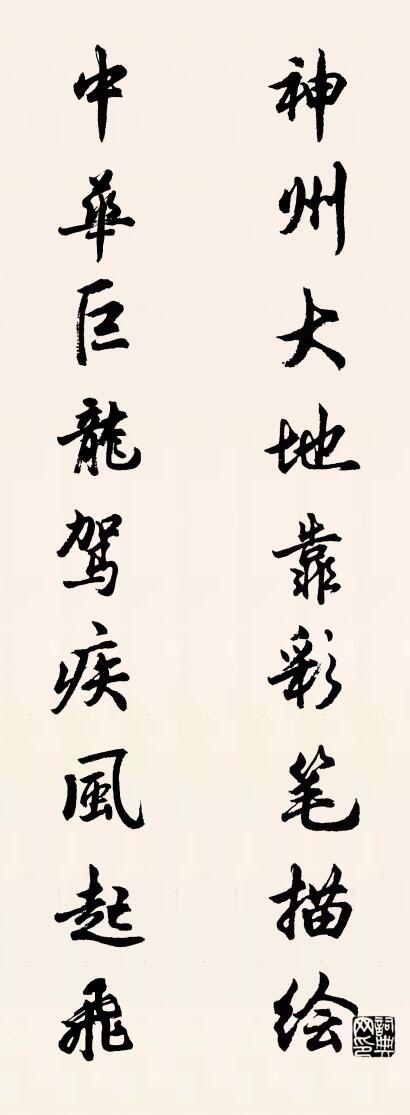 神州大地靠彩笔描绘
中華巨龍驾疾風起飛
詞典网印